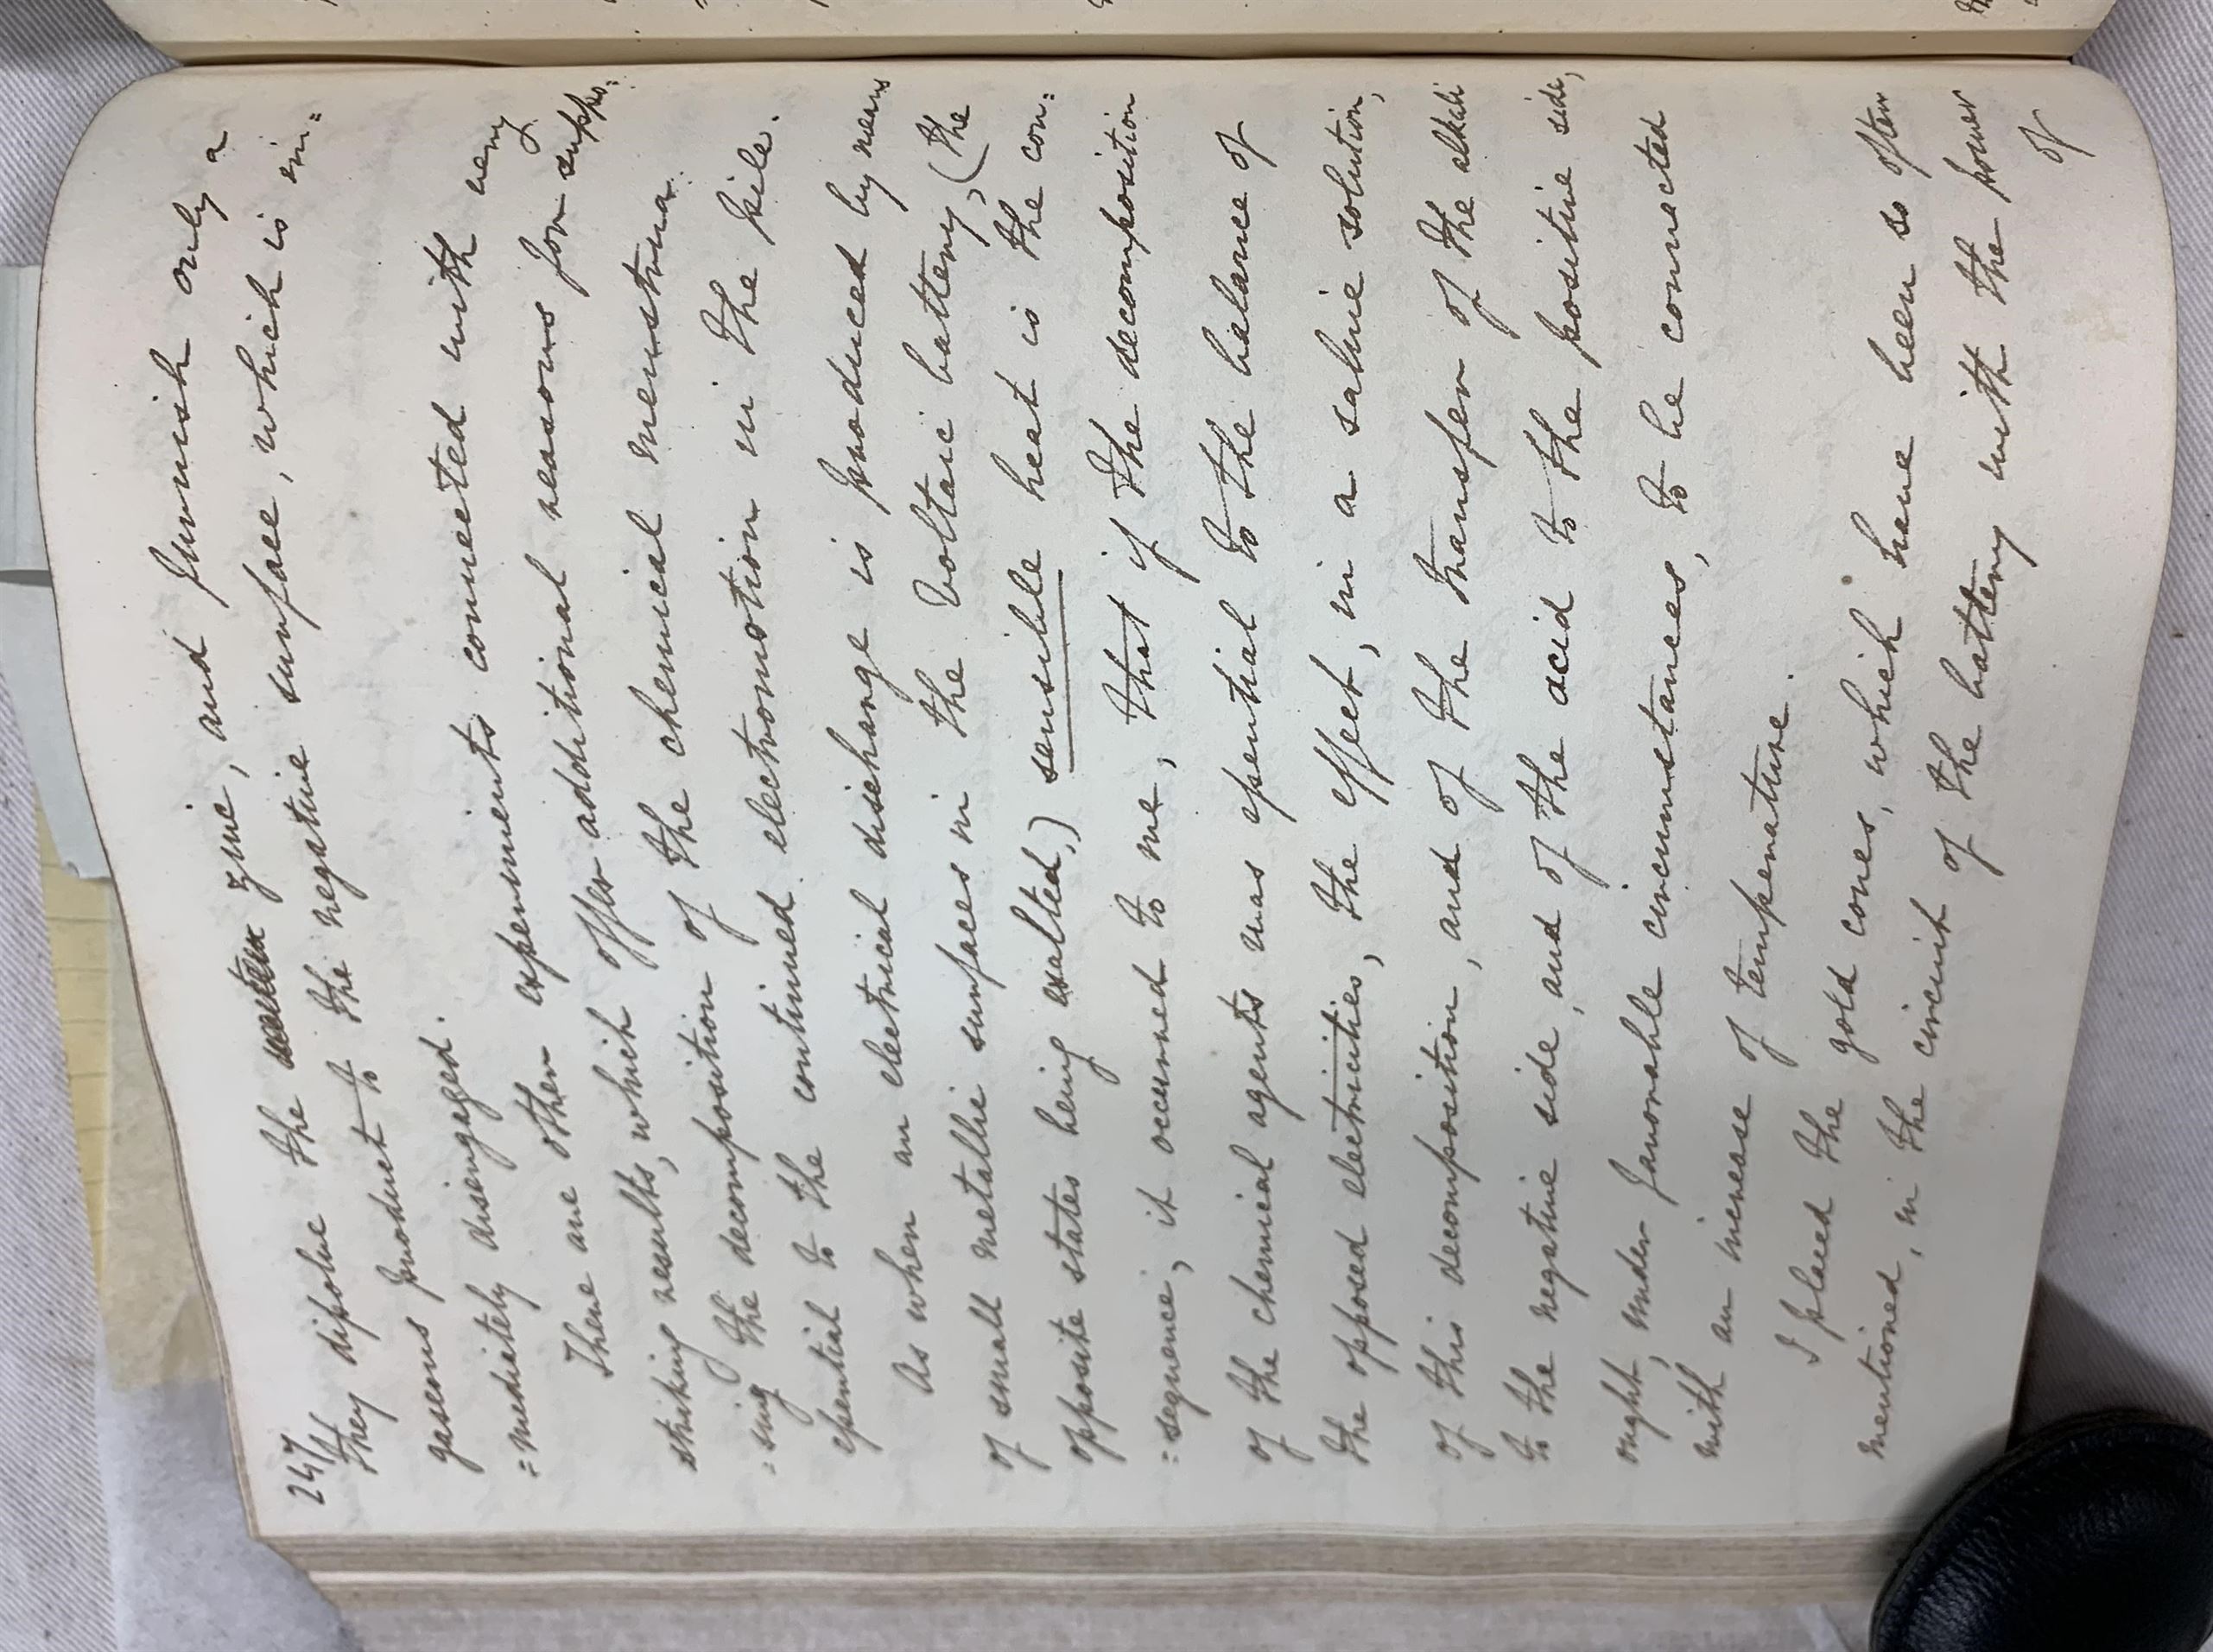 247
they dissolve the zinc, and furnish only a
gaseous product to the negative surface, which is im=
=mediately disengaged.
There are other experiments connected with very
striking results, which offer additional reasons for suppo=
=sing the decomposition of the chemical menstrua
essential to the continued electromotion in the pile.
As when an electrical discharge is produced by means
of small metallic surfaces in the Voltaic battery, (the
opposite states being exalted,) sensible heat is the con=
=sequence, it occurred to me, that if the decomposition
of the chemical agents was essential to the balance of
the opposed electricities, the effect, in a saline solution,
of this decomposition, and of the transfer of the alkali
to the negative side, and of the acid to the positive side,
ought, under favorable circumstances, to be connected
with an increase of temperature.
I placed the gold cones, which have been so often
mentioned, in the circuit of the battery with the power
of